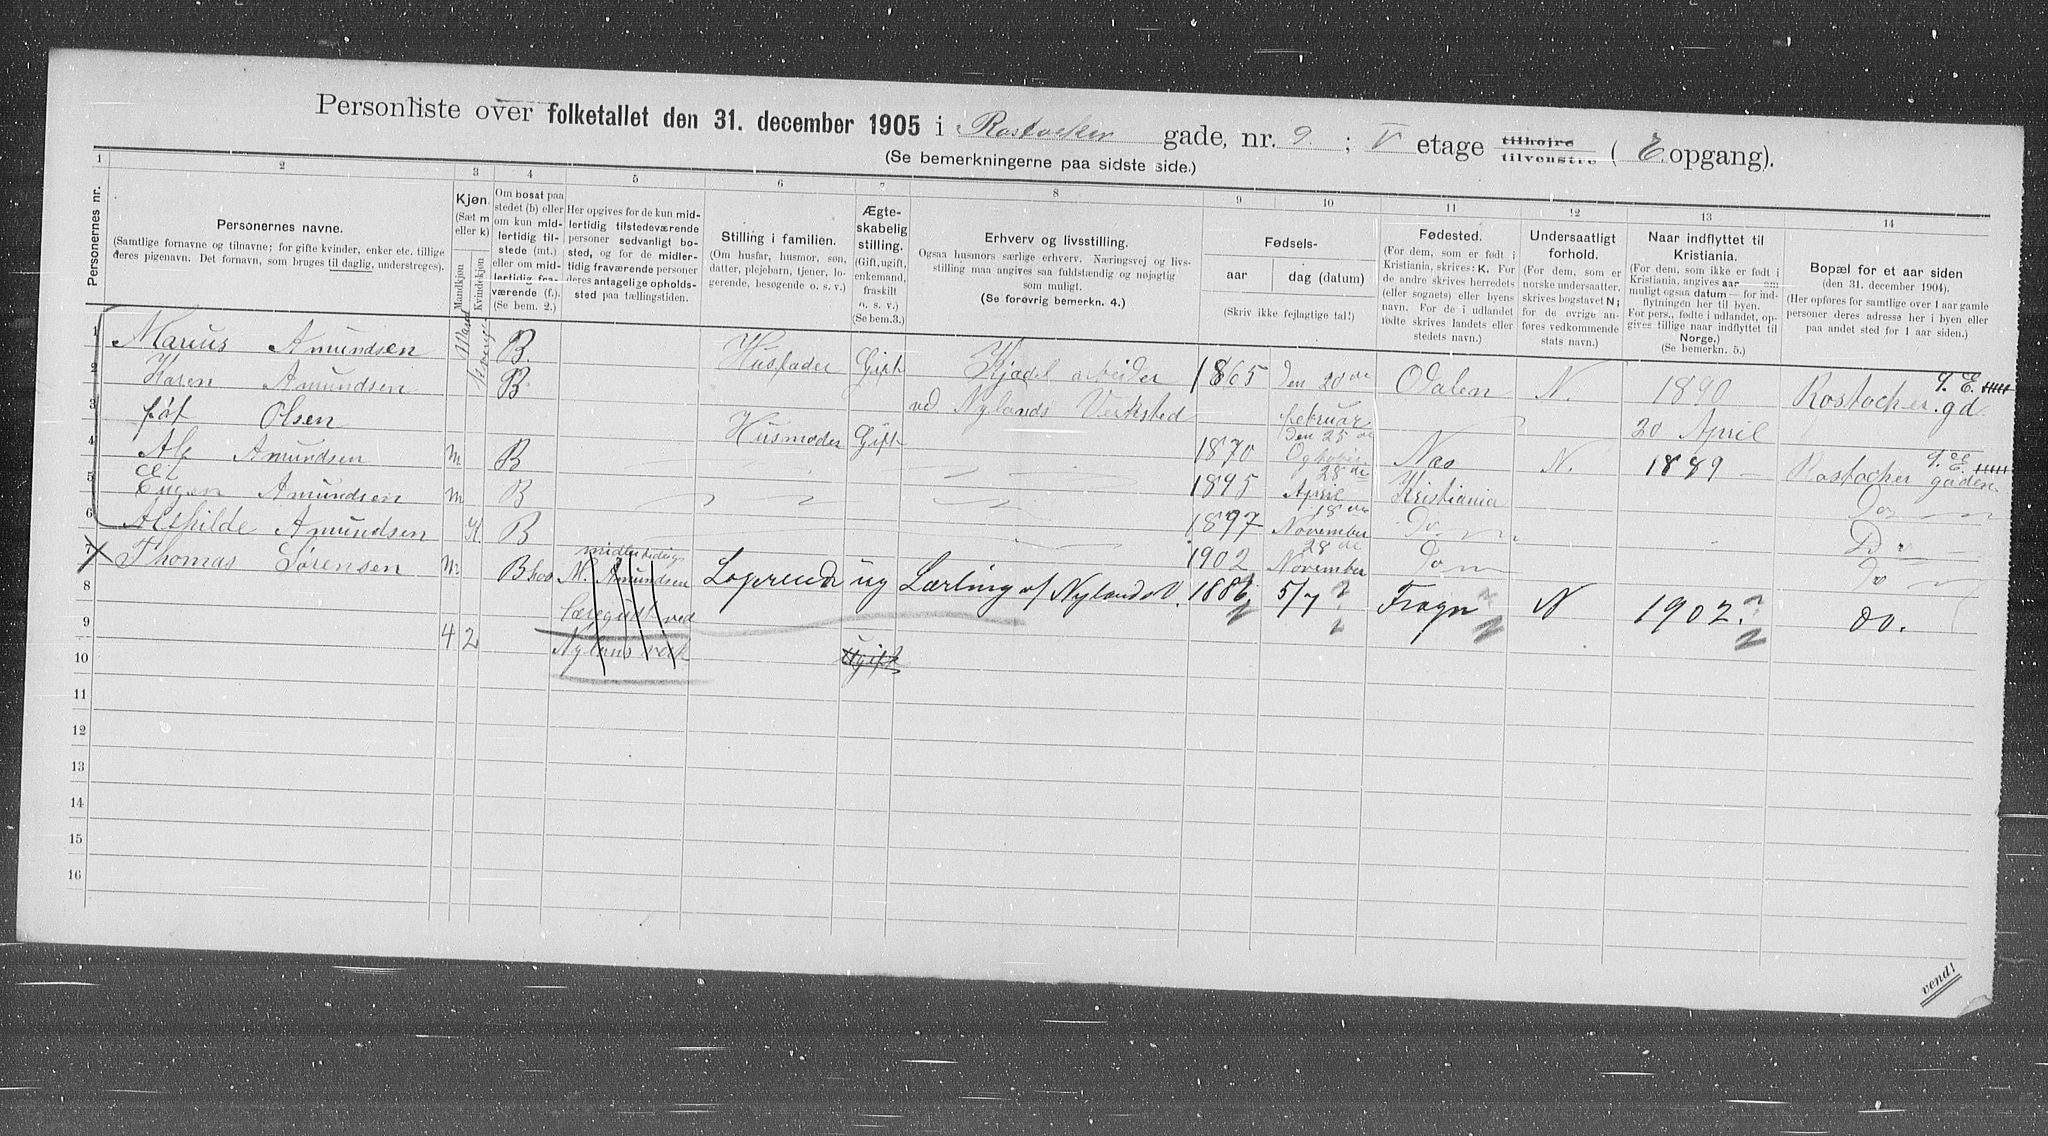 Personliste over folketallet den 31. december 1905 i Rostocker gade, nr. 9. ; V etage tilhøjre tilvenstre ( E. opgang).
(Se bemerkningerne paa sidste side.)
1 2 3 4 5 6 7 8 9 10 11 12 13 14
Personernes nr.
Personernes navne.
(Samtlige fornavne og tilnavne; for gifte kvinder, enker etc. tillige
deres pigenavn. Det fornavn, som bruges til daglig, understreges).
Kjøn.
(Sæt m
eller k)
Mandkjøn
Kvindekjøn
Om bosat paa
stedet (b) eller
om kun mid-
lertidig til-
stede (mt.)
eller om mid-
lertidig fra-
værende (f.)
(Se bem. 2.)
Her opgives for de kun mid-
lertidig tilstedeværende
personer sedvanligt bo-
sted, og for de midler-
tidig fraværende personer
deres antagelige opholds-
sted paa tællingstiden.
Stilling i familien.
(Om husfar, husmor, søn,
datter, plejebarn, tjener, lo-
gerende, besøgende o. s. v.)
Ægte-
skabelig
stilling.
(Gift, ugift,
enkemand,
fraskilt
o. s. v.)
(Se bem. 3.)
Erhverv og livsstilling.
Ogsaa husmors særlige erhverv. Næringsvej og livs-
stilling maa angives saa fuldstændig og nøjagtig
som muligt.
(Se forøvrig bemerkn. 4.)
Fødsels-
aar dag (datum)
(Skriv ikke fejlagtige tal!)
Fødested.
(For dem, som er født i
Kristiania, skrives: K. For
de andre skrives herredets
(eller sognets) eller byens
navn. For de i udlandet
fødte skrives landets eller
stedets navn.)
Undersaatligt
forhold.
(For dem, som er
norske undersaatter,
skrives bogstavet N;
for de øvrige an-
føres vedkommende
stats navn.)
Naar indflyttet til
Kristiania.
(For dem, som ikke er født i
Kristiania, angives aar og om
muligt ogsaa datum – for ind-
flytningen her til byen.
For pers., fødte i udlandet, op-
gives tillige naar indflyttet til
Norge.)
(Se bemerkn. 5.)
Bopæl for et aar siden
(den 31. december 1904).
(Her opføres for samtlige over 1 aar gamle
personer deres adresse her i byen eller
paa andet sted for 1 aar siden.)
1 Marius Amundsen B. Husfader Gift Kjedel arbeider 1865 den 20 de Odalen N. 1890 Rostocher.gd 9. E.
ved Nylands Verksted februar 20 April
2 Karen Amundsen B.
3 føt Olsen Husmoder Gift 1870 den 25 de Nes N. 1889 Rostocher gaden 9. E.
4 Alf Amundsen m B 1895 28 de April Kristiania Do
5 Eugen Amundsen m B 1897 18 de November Do Do
6 Alfhilde Amundsen K. B 1902 28 de November Do Do
7 Thomas Sørensen m B hos M. Amundsen Logerende ug Lærling af Nylands V. 1886 5/7 ? Frogn ? N 1902. ? do.
midlertidig
8
ved
9 4 2
Nylans verk
10 Ugift
11
12
13
14
15
16
vend!